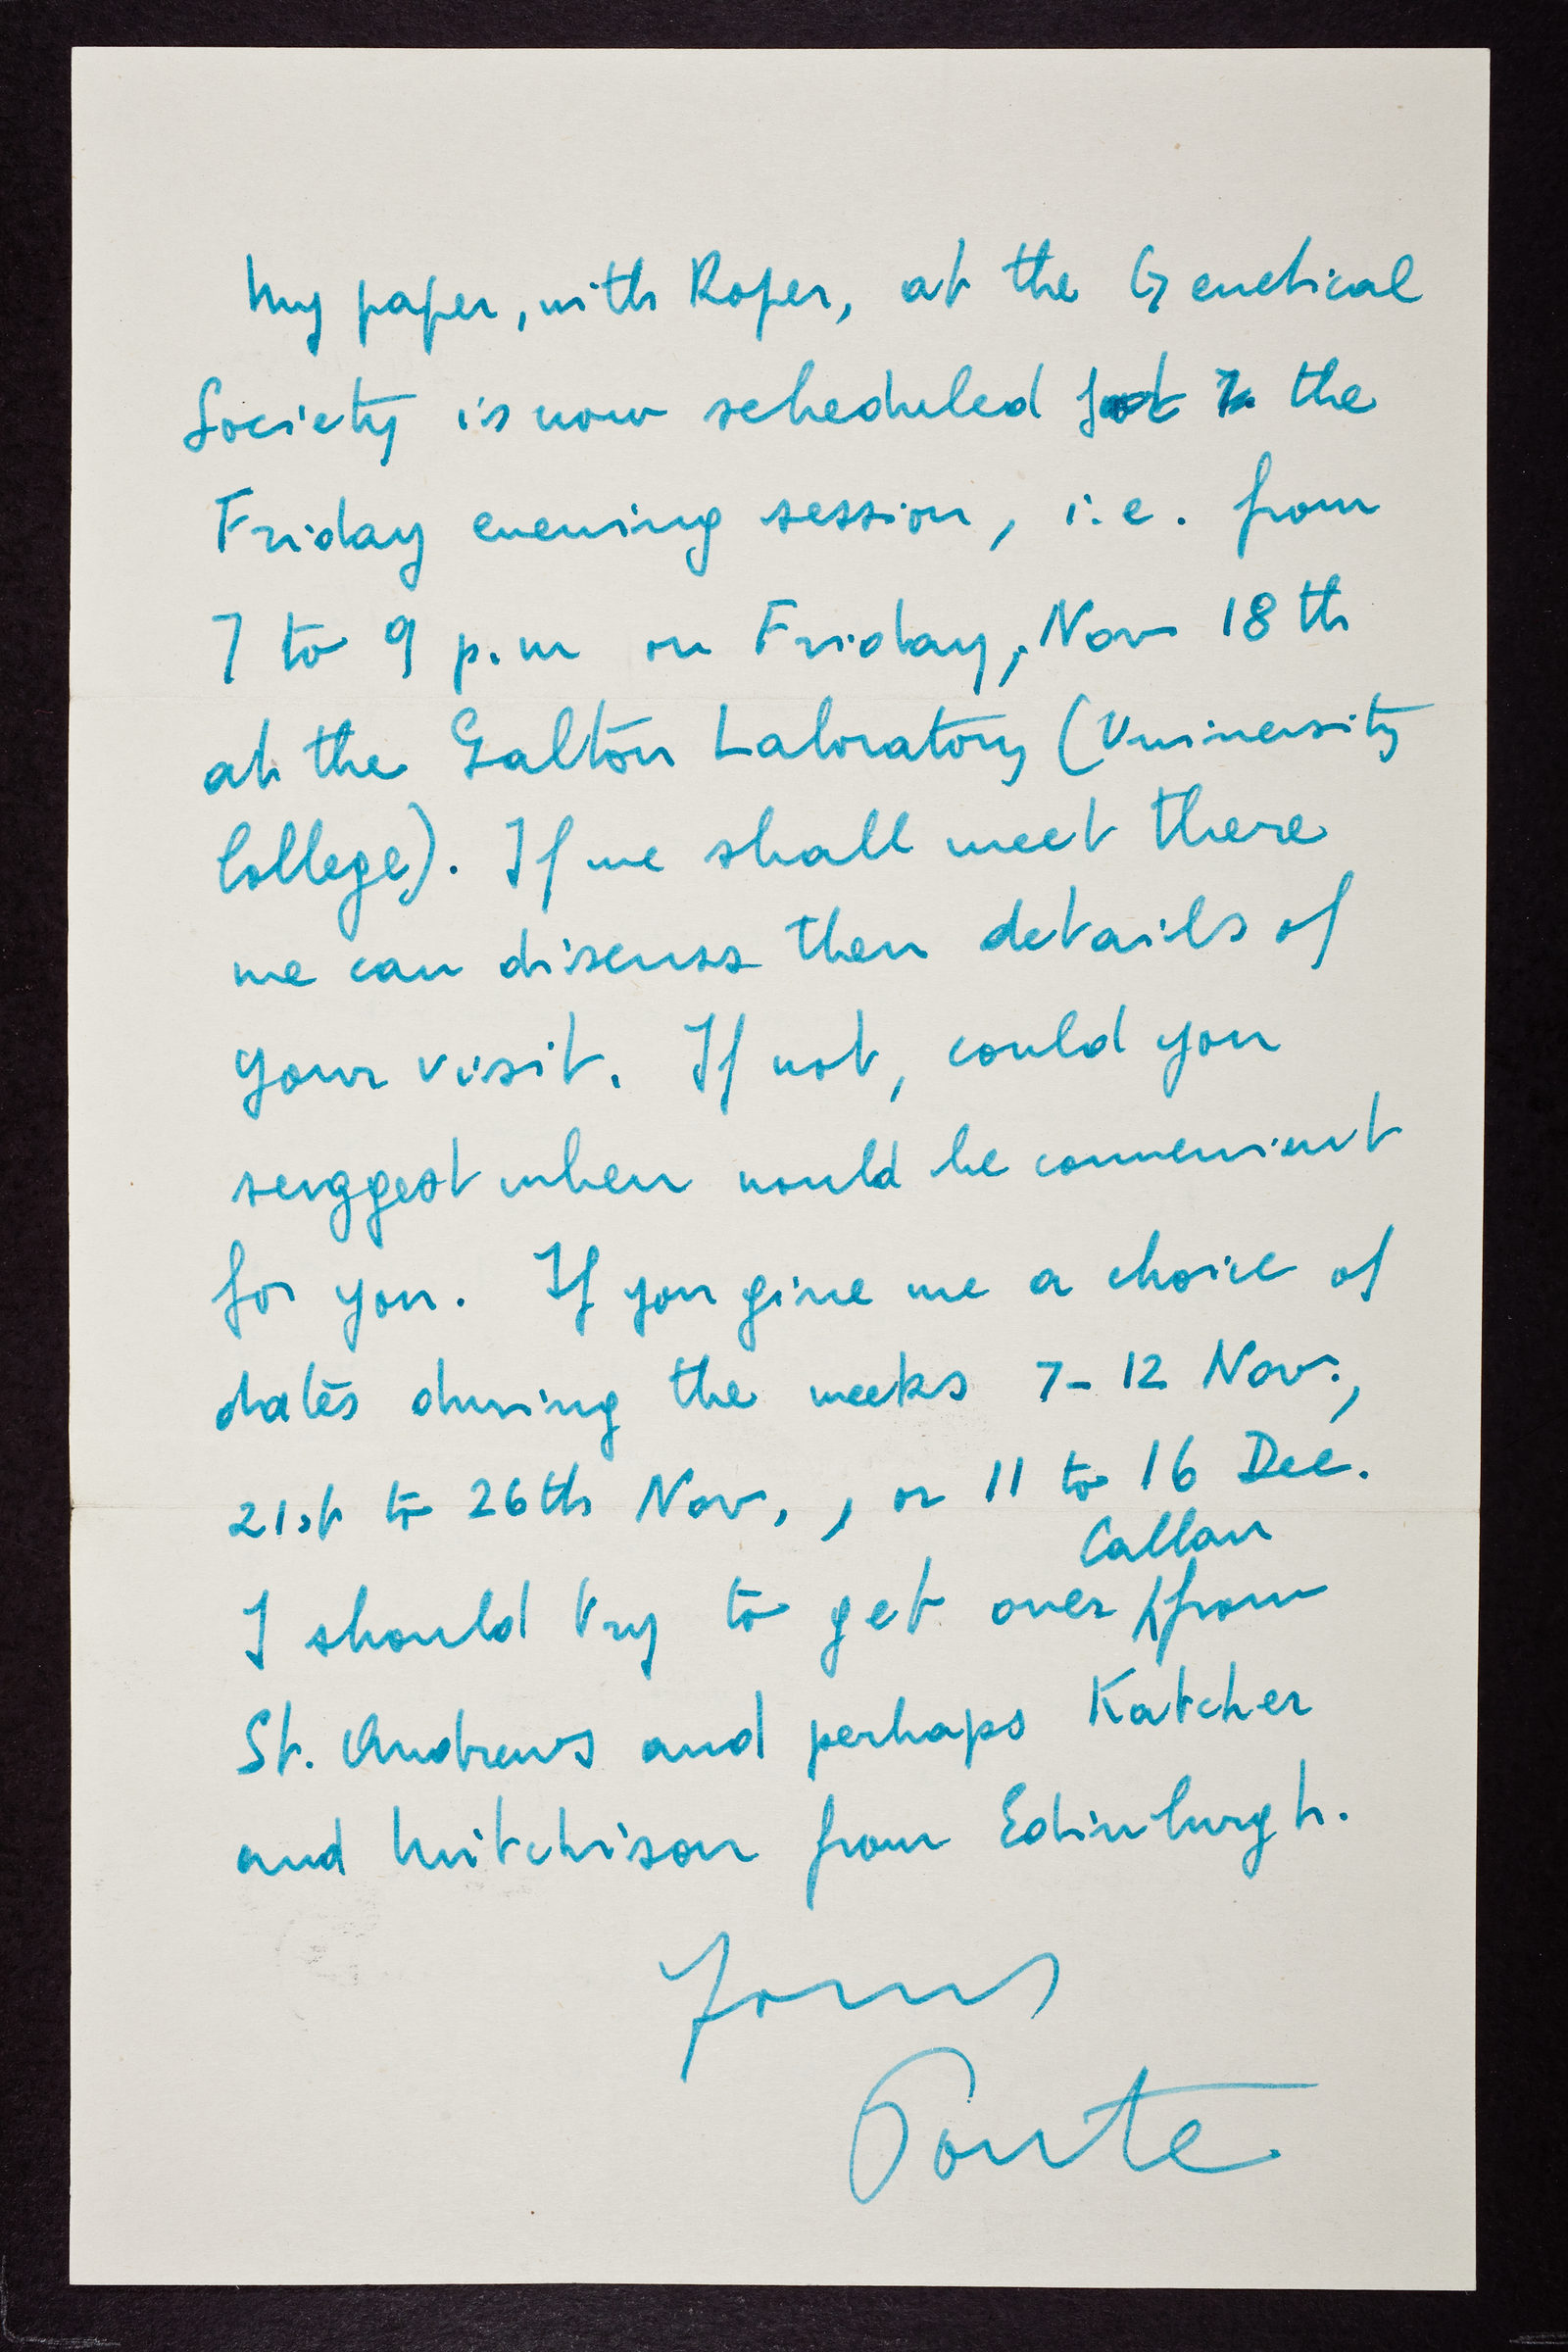 My paper, with Roper, at the Genetical
Society is now scheduled for the
Friday evening session, i.e. from
7 to 9 p.m on Friday, Nov 18th
at the Galton Laboratory (University
College). If we shall meet there
we can discuss then details of
your visit. If not, could you
suggest when would be convenient
for you. If you give me a choice of
dates during the weeks 7-12 Nov.,
21st to 26th Nov., , or 11 to 16 Dec.
Callan
I should try to get over from
St. Andrews and perhaps Katcher
and Mitchison from Edinburgh.
Yours
Ponte